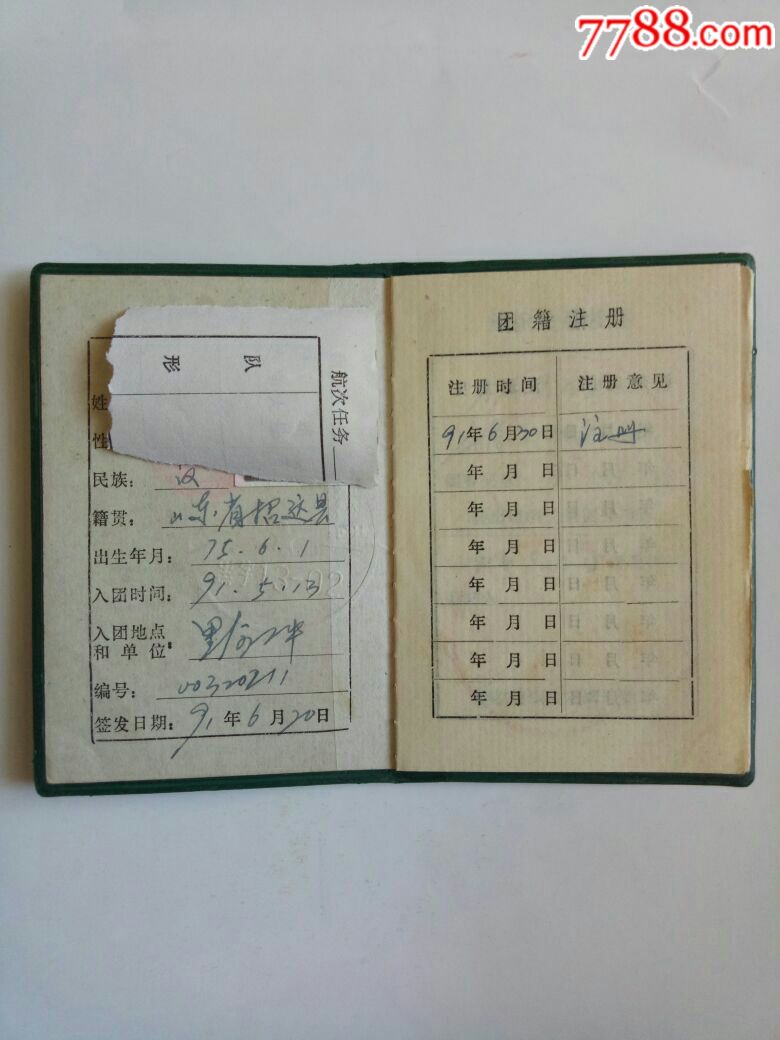 7788.com
航次任务
队
形
姓
性
民族: 汉
籍贯: 山东省招远县
出生年月: 75.6.1
入团时间: 91.5.13
入团地点
和单位:
编号: 00320211
签发日期: 91年6月20日
团籍注册
注册时间 注册意见
91年6月30日 注册
年 月 日
年 月 日
年 月 日
年 月 日
年 月 日
年 月 日
年 月 日